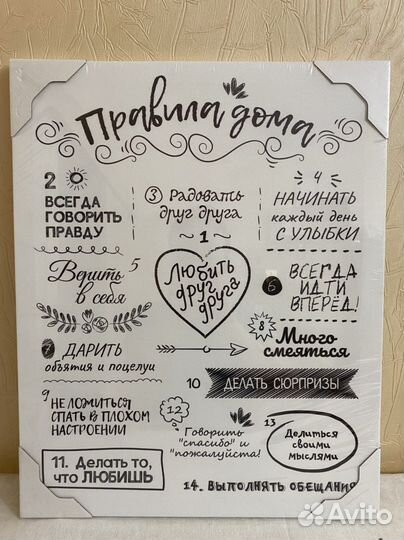 Правила дома
2
ВСЕГДА
ГОВОРИТЬ
ПРАВДУ
3 Радовать
друг друга
4
НАЧИНАТЬ
каждый день
С УЛЫБКИ
1
Любить
друг
друга
Верить 5
в себя
6 ВСЕГДА
ИДТИ
ВПЕРЁД!
7 ДАРИТЬ
объятия и поцелуи
8
Много
смеяться
9
НЕ ЛОЖИТЬСЯ
СПАТЬ В ПЛОХОМ
НАСТРОЕНИИ
10 ДЕЛАТЬ СЮРПРИЗЫ
12
Говорить
"спасибо" и
"пожалуйста!
13
Делиться
своими
мыслями
11. Делать то,
что ЛЮБИШЬ
14. ВЫПОЛНЯТЬ ОБЕЩАНИЯ
Avito